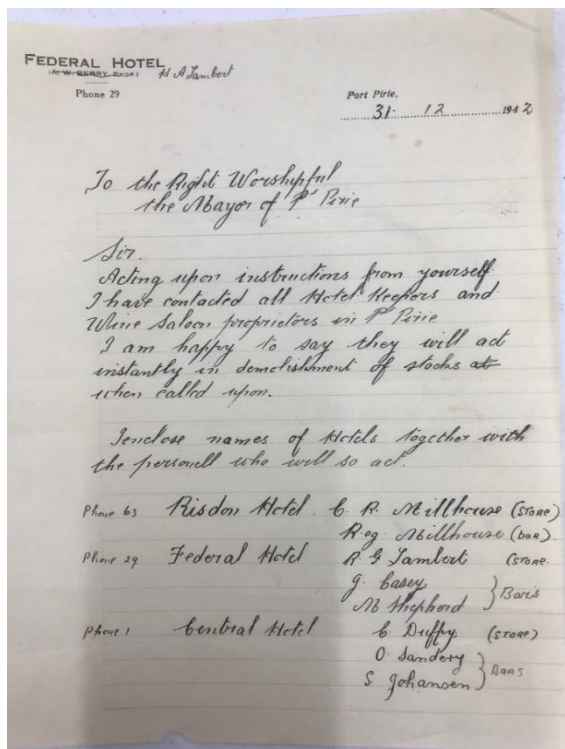 FEDERAL HOTEL
(A. W. BERRY PROP.) H A Lambert
Phone 29
Port Pirie,
31- 12 1942
To the Right Worshipful
the Mayor of Pt Pirie
Sir.
Acting upon instructions from yourself
I have contacted all Hotel Keepers and
Wine Saloon proprietors in Pt Pirie
I am happy to say they will act
instantly in demolishment of stocks at
when called upon.
I enclose names of Hotels together with
the personell who will so act.
Phone 63 Risdon Hotel. C. R. Millhouse (STORE)
Reg Millhouse (bar)
Phone 29 Federal Hotel R G Lambert (STORE.
G. Casey
M Shepherd } Bars
Phone 1 Central Hotel C. Duffy (STORE)
O. Sandery
S. Johansen } Bars